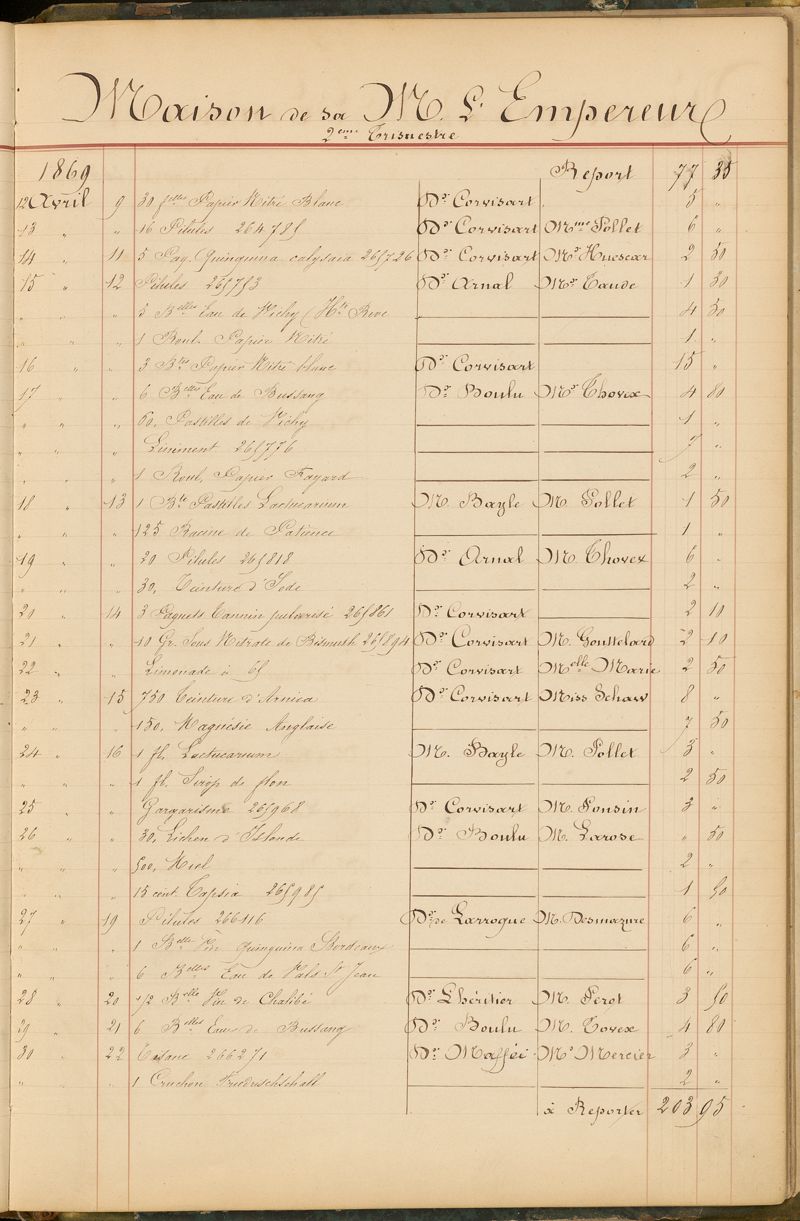 Maison de sa M. L' Empereur
2eme Trimestre
1869 Report 77 35
12 Avril 9 30 flles Papier Nitré Blanc Dr Corvisart 5 "
13 " " 16 Pilules 264785 Dr Corvisart Mme Pollet 6 "
14 " 11 5 Paq. Quinquina calysaia 265726 Dr Corvisart Mr Huescar 2 50
15 " 12 Pilules 265753 Dr Arnal Mr Taude 1 30
" " " 5 Blles Eau de Vichy (Hte Rive 4 50
" " 1 Roul. Papier Nitré 1 "
16 " " 3 Btes Papier Nitré blanc Dr Corvisart 15 "
17 " " 6 Blles Eau de Bussang Dr Boulu Mr Thovex 4 80
" " " 60, Pastilles de Vichy 1 "
" " " Liniment 265776 7 "
" " " 1 Roul, Papier Fayard 2 "
18 " 13 1 Bte Pastilles Lactucarium M. Bayle M. Pollet 1 50
" " " 125 Racine de Patience 1 "
19 " " 20 Pilules 265818 Dr Arnal M. Thovex 6 "
" " " 30, Teinture d'Iode 2 "
20 " 14 3 Paquets Tannin pulverisé 265861 Dr Corvisart 2 10
21 " " 10 Gr. Sous Nitrate de Bismuth 265894 Dr Corvisart M. Gouttelard 2 10
22 " " Limonade à 65 Dr Corvisart Melle Marie 2 50
23 " 15 750 Teinture d'Arnica Dr Corvisart Miss Schaw 8 "
" " " 150, Magnésie Anglaise 7 50
24 " 16 1 fl. Lactucarium M. Bayle M. Pollet 3 "
" " " 1 fl. Sirop de flon 2 50
25 " " Gargarisme 265968 Dr Corvisart M. Ponsin 3 "
26 " " 30, Lichen d'Islande Dr Boulu M. Larose " 50
" " " 500, Miel 2 "
" " " 15 cent. Tapsia 265985 1 50
27 " 19 Pilules 266116 Dr de Larroque M. Desmazure 6 "
" " " 1 Blle Vin Quinquina Bordeaux 6 "
" " " 6 Blles Eau de Vals St Jean 6 "
28 " 20 1/2 Blle Vin de Chalibé Dr Lhéritier M. Perot 3 50
29 " 21 6 Blles Eau de Bussang Dr Boulu M. Tovex 4 80
30 " 22 Tisane 266271 Dr Maffei Mr Mercier 3 "
" " 1 Cruchon Friedrischshall 2 "
à Reporter 203 95